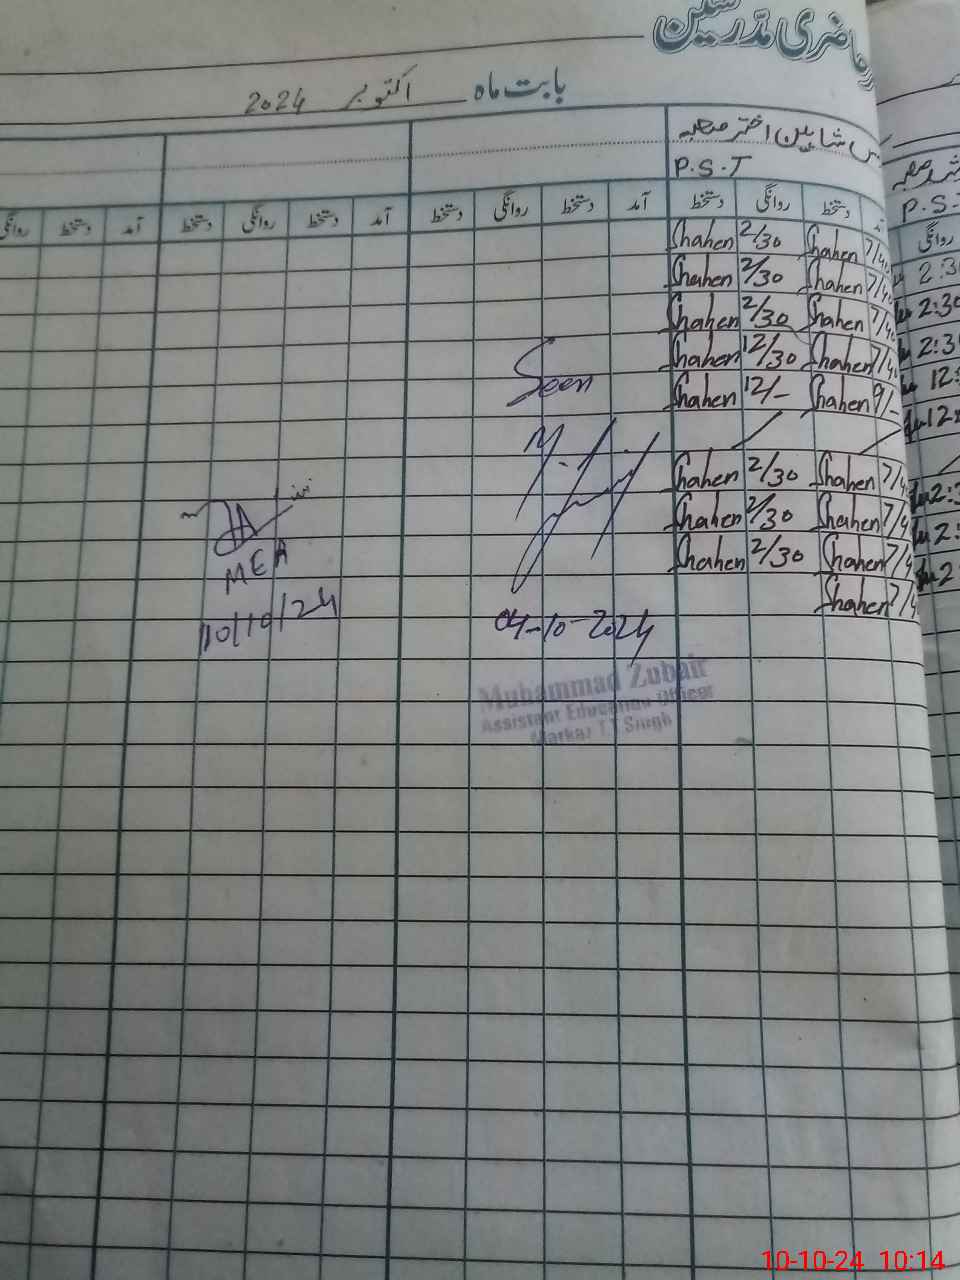 حاضری مدرسین
بابت ماہ اکتوبر 2024
شاہین اختر صاحبہ
P.S.T
P.S.
آمد دستخط روانگی دستخط آمد دستخط روانگی دستخط آمد دستخط روانگی دستخط آمد دستخط روانگی
روانگی
Shahen 2/30 Shahen 7/40 2:30
Shahen 2/30 Shahen 7/40 2:30
Shahen 2/30 Shahen 7/40 2:3
Shahen 12/30 Shahen 7/4 12:
Shahen 12/- Shahen 9/- 12:
Seen
Shahen 2/30 Shahen 7/4 2:
Shahen 2/30 Shahen 7/4 2:
Shahen 2/30 Shahen 7/4 2
Shahen 7/4
MEA
10/10/24
04-10-2024
Muhammad Zubair
Assistant Education Officer
Markaz T.T.Singh
10-10-24 10:14